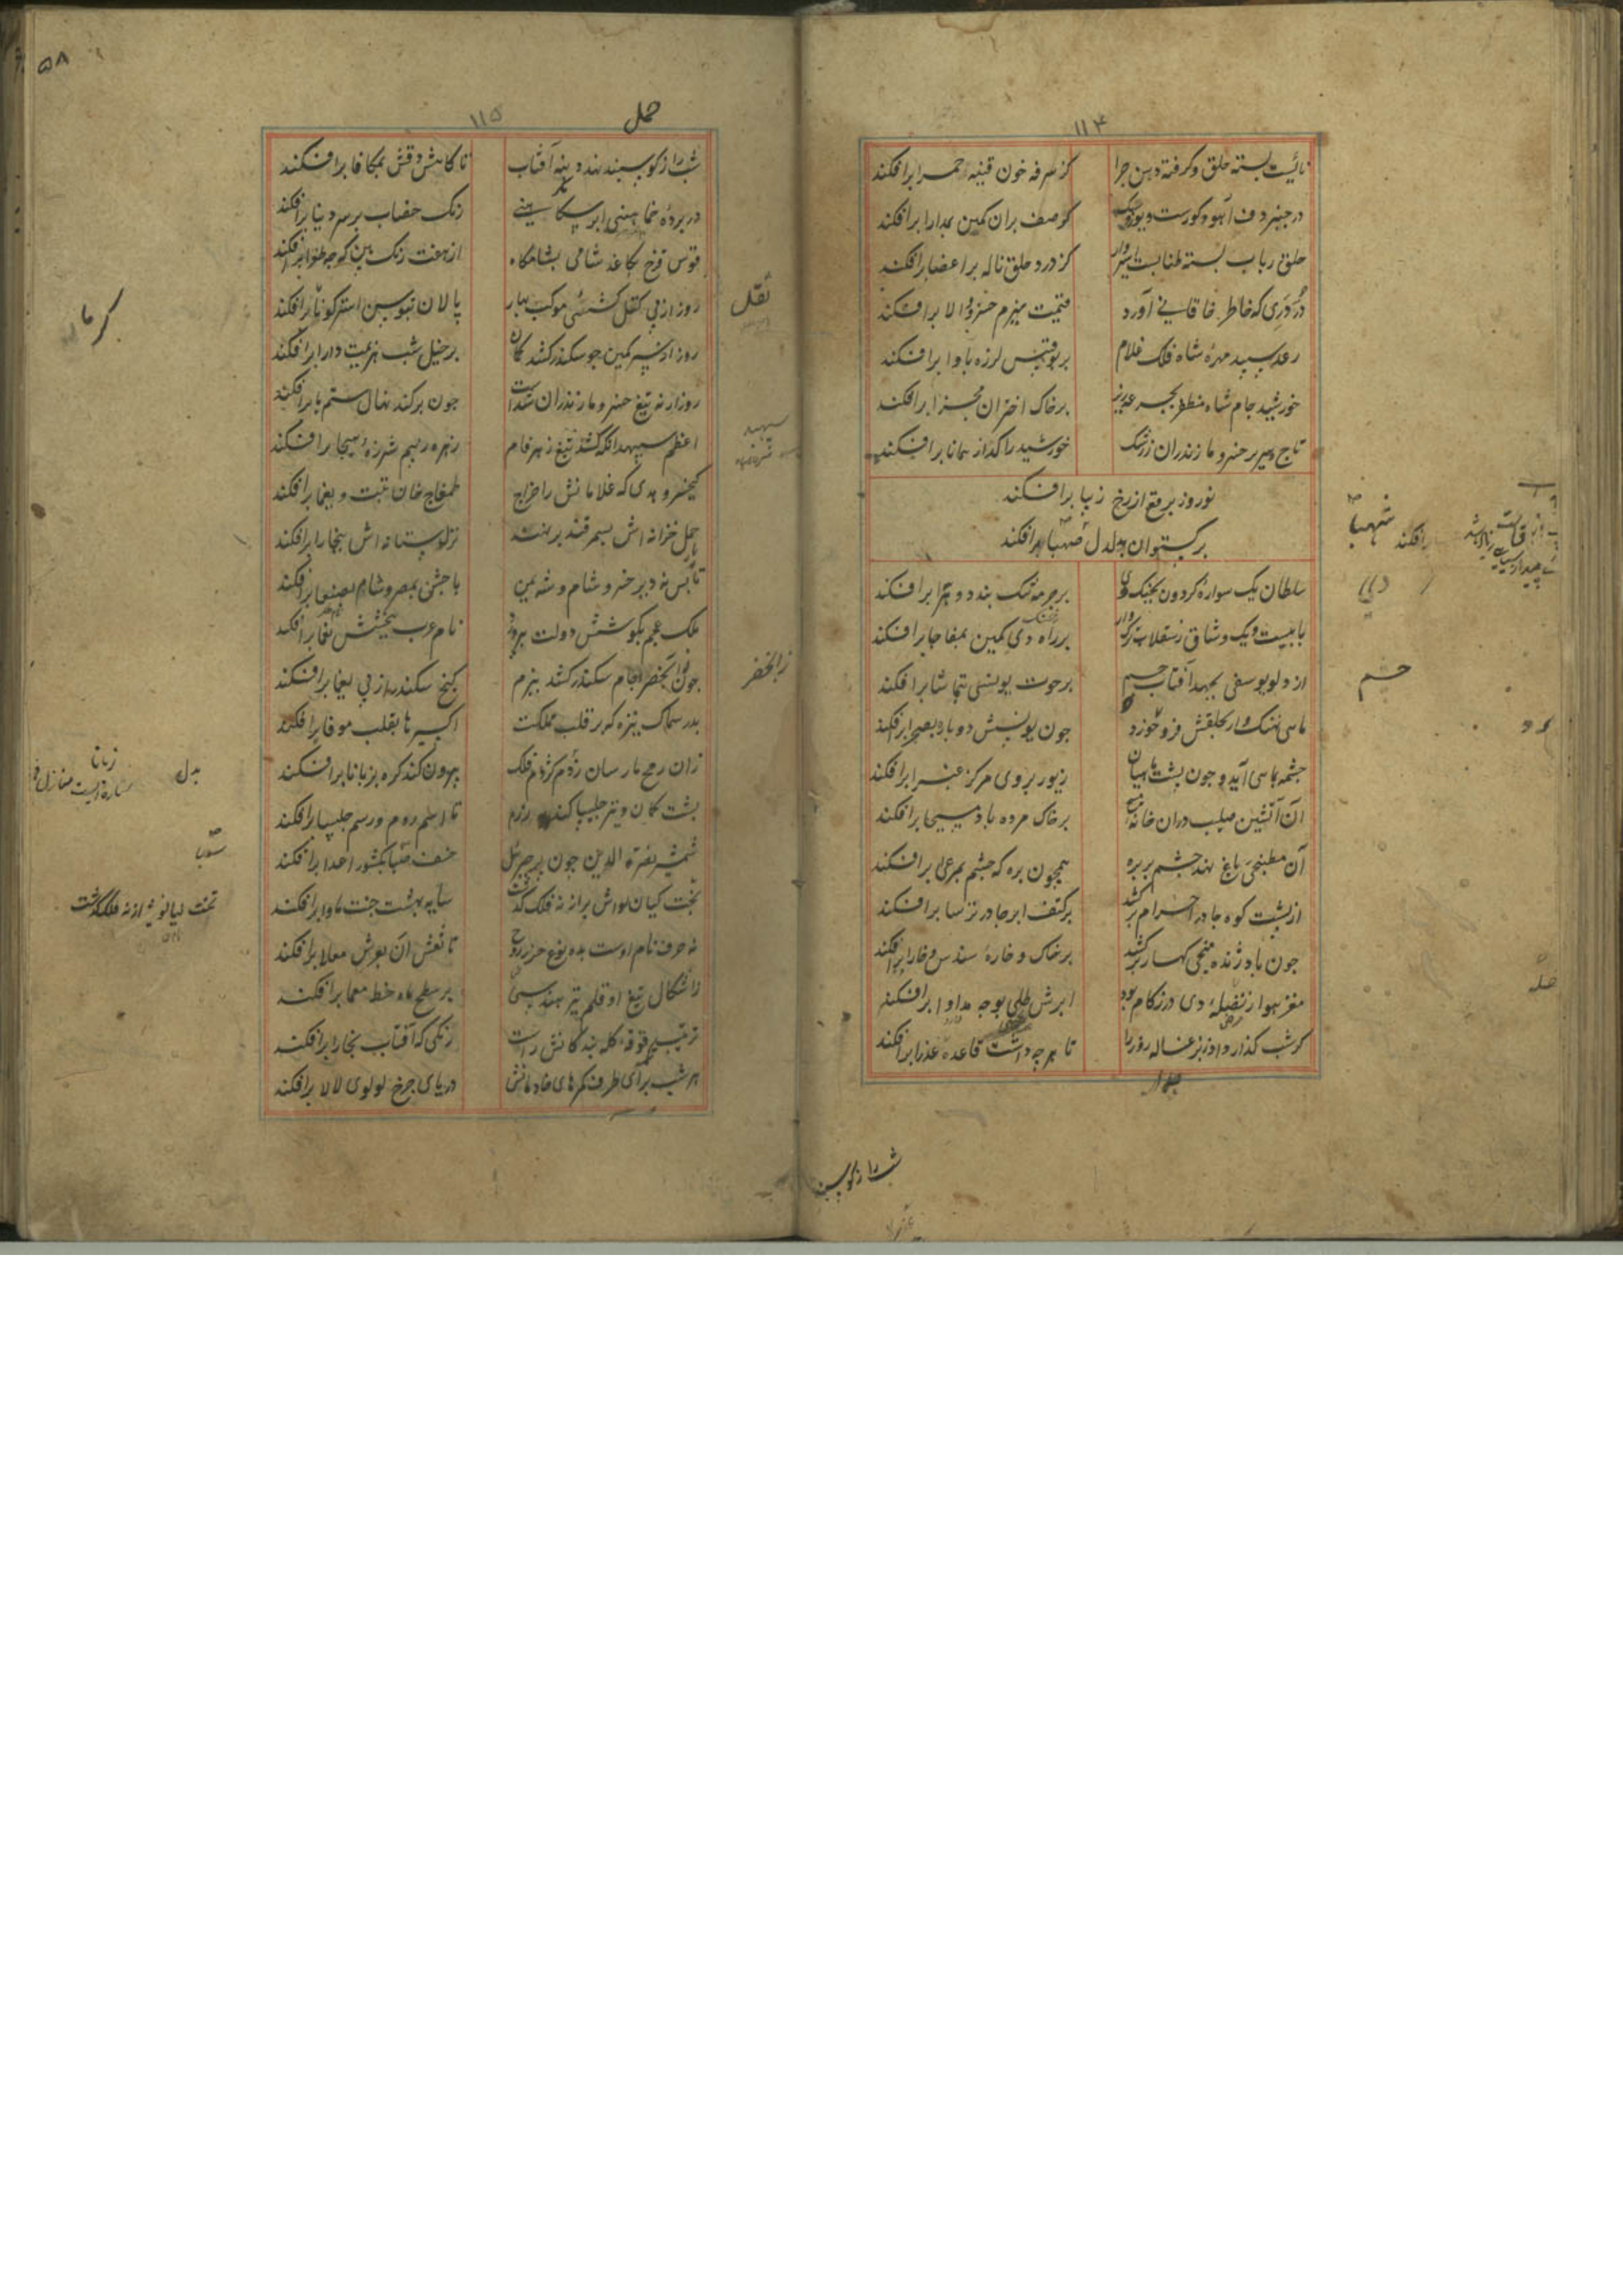 ۱۱۴
نائیست بسته حلق و گرفته دهن چرا
کز سرفه خون قنینه حمرا برافکند
در چنبر دف آهو و گورست و
کز صف بران کمین بمدارا برافکند
حلق رباب بسته طنابست اسیروار
کز درد حلق ناله بر اعضا برافکند
در دری که خاطر خاقانی آورد
قیمت ببزم خسرو والا برافکند
رعد سپید مهره شاه فلک غلام
بر بوقبیس لرزه باوا برافکند
خورشید جام شاه مظفر بجرعه ریز
بر خاک اختران مجزا برافکند
تاج و سریر خسرو مازندران ز رشک
خورشید را گداز همانا برافکند
نوروز برقع از رخ زیبا برافکند
برگستوان بدلدل شهبا برافکند
سلطان یک سواره گردون بجنگ دی
بر چرمه تنگ بندد و هرا برافکند
با بیست و یک وشاق ز سقلاب ترک وار
بر راه دی کمین بمفاجا برافکند
از دلو یوسفی بجهد آفتاب چشم
بر حوت یونسی بتماشا برافکند
ماهی نهنگ وار بحلقش فرو خورد
چون یونسش دوباره بصحرا برافکند
چشمه بماهی آید و چون پشت ماهیان
زیور بروی مرکز غبرا برافکند
آن آتشین صلیب در آن خانه مسیح
بر خاک مرده باد مسیحا برافکند
آن مطبخی باغ نهد چشم بر بره
همچون بره که چشم بمرعی برافکند
از پشت کوه چادر احرام برکشد
بر کتف ابر چادر ترسا برافکند
چون باد ژنده پیچی کهسار برکشد
بر خاک و خاره سندس و خارا برافکند
مغز هوا ز فضله دی در زکام بود
ابرش طلی بوجه مداوا برافکند
گر شب گذار داد بزغاله روز را
تا هر چه داشت قاعده عذرا برافکند
شب را ز گوسپند
۱۱۵
حمل
۵۸
شب را ز گوسپند نهد دنبه آفتاب
تا کاهش دقش بمکافا برافکند
در پرده خماهنی ابر سکاهنی
رنگ خضاب بر سر دنیا برافکند
قوس قزح بکاغذ شامی بشامگاه
از هفت رنگ بین که چه طغرا برافکند
روز از پی کشی موکب بهار
پالان بتوسن استر گرما برافکند
روز از کمین چو سکندر کشد کمان
بر خیل شب هزیمت دارا برافکند
روز ار نه تیغ خسرو مازندران شدست
چون برکند نهال ستم یا برافکند
اعظم سپهبد آنکه کشد تیغ زهرفام
زهره ز بیم شرزه هیجا برافکند
کیخسرو هدی که غلامانش را خراج
طمغاج خان تبت و یغما برافکند
حمل خزانه اش بسمرقند برنهند
نزل ستانه اش ببخارا برافکند
تا بس نه دیر خسرو شام و شه یمن
باجش بمصر و شام بصنعا برافکند
ملک عجم بکوشش دولت بپرورد
نام عرب ببخشش نعما برافکند
چون ز آب خضر جام سکندر کشد ببزم
گنج سکندر از پی یغما برافکند
بدر سماک نیزه که بر قلب مملکت
اکسیرها بقلب موفا برافکند
زان رمح مارسان ز دم کژدم فلک
بیرون کند گره بزبانا برافکند
پشت کمان و تیر چلیپا کند برزم
تا اسم روم و رسم چلیپا برافکند
شمشیر نصرة الدین چون پر جبرئیل
خسف سبا بکشور اعدا برافکند
تخت کیان لواش بر از نه فلک گذشت
سایه بهشت جنت ماوا برافکند
نه حرف نام اوست بده نوع حرز روح
تا نقش آن بعرش معلا برافکند
ز اشکال تیغ او قلم تیر هندسی
بر سطح ماه خط معما برافکند
ترتیب قوقه کله بندگانش راست
رنگی که آفتاب بخارا برافکند
هر شب برای طرف کمرهای خادمانش
دریای چرخ لولوی لالا برافکند
گرما
بدل
زبانا